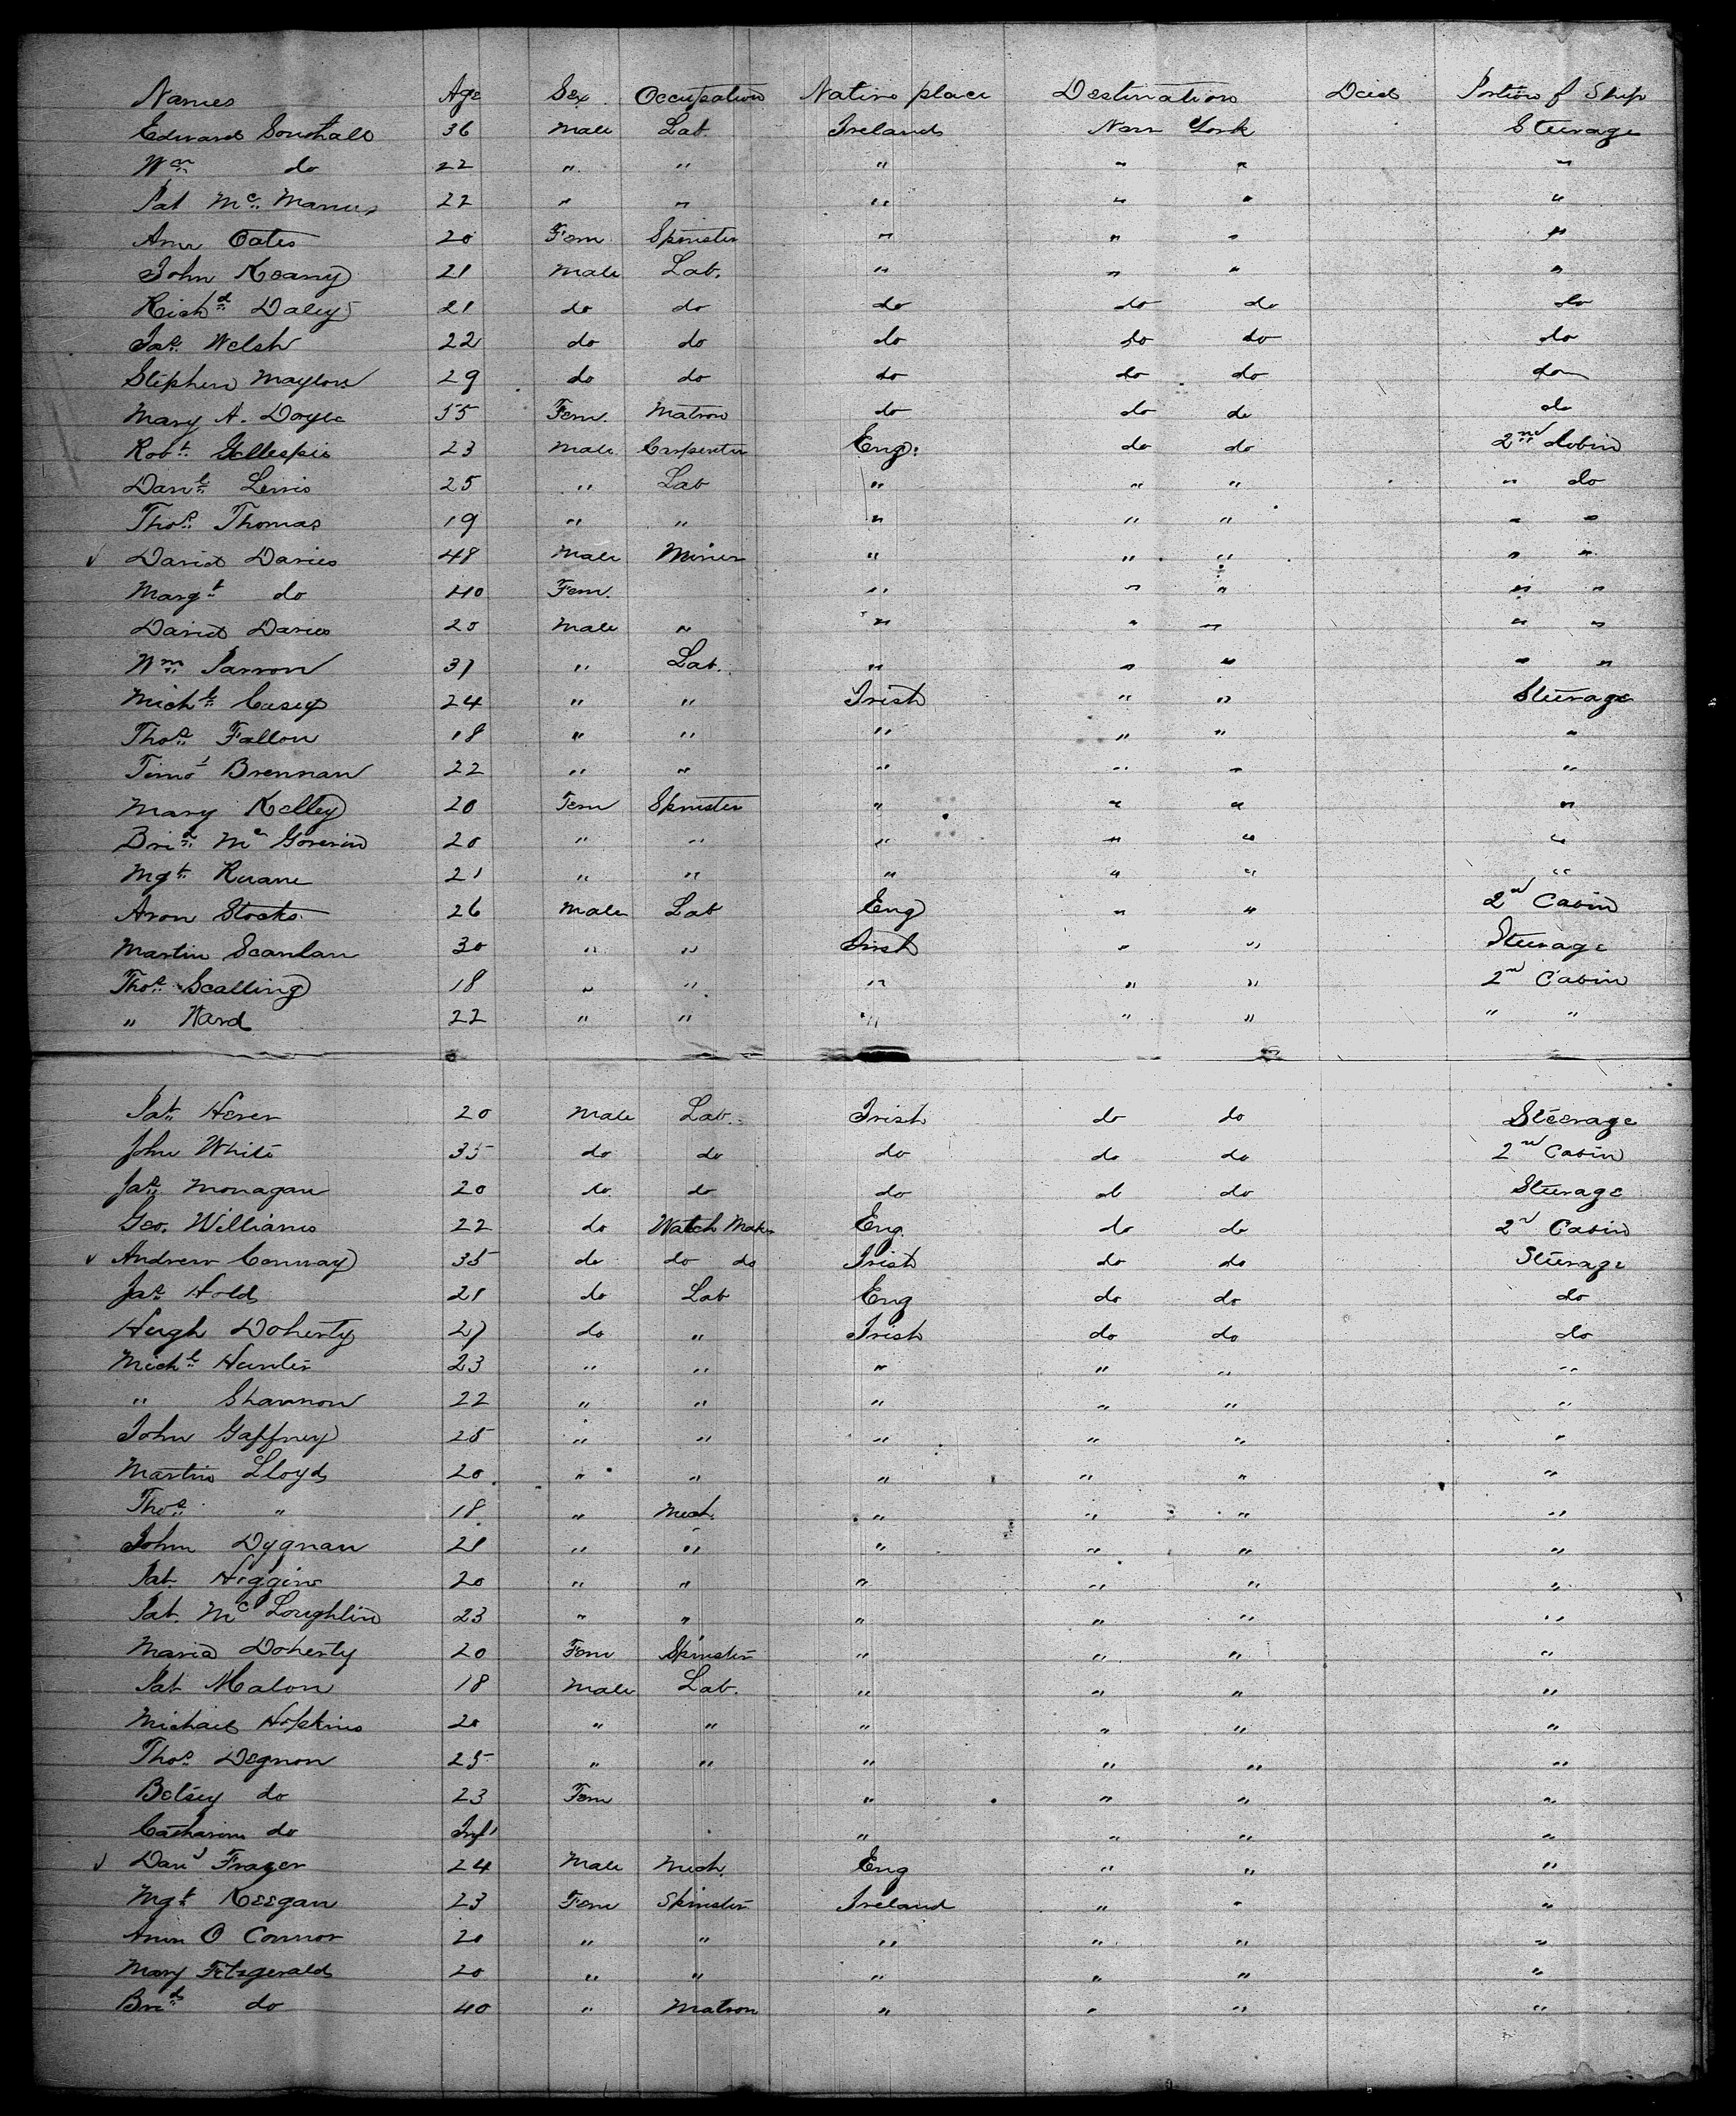 Names Age Sex Occupation Native place Destination Died Portion of Ship
Edward Southall 36 Male Lab Ireland New York Steerage
Wm do 22 " " " " " "
Pat Mc Manus 22 " " " " " "
Ann Oates 20 Fem Spinster " " " "
John Keany 21 Male Lab. " " " "
Richd Daley 21 do do do do do do
Jas Welsh 22 do do do do do do
Stephen Maylon 29 do do do do do do
Mary A. Doyle 55 Fem. Matron do do do do
Robt Gillespie 23 Male Carpenter Eng. do do 2nd Cabin
Danl Lewis 25 " Lab " " " " do
Thos Thomas 19 " " " " " " "
David Davies 48 Male Miner " " " " "
Margt do 40 Fem. " " " " "
David Davies 20 Male " " " " " "
Wm Parron 37 " Lab. " " " " "
Michl Casey 24 " " Irish " " Steerage
Thos Fallon 18 " " " " " "
Timot Brennan 22 " " " " " "
Mary Kelley 20 Fem Spinster " " " "
Brid Mc Goverin 20 " " " " " "
Mgt Ruane 21 " " " " " "
Aron Stocks 26 Male Lab Eng " " 2nd Cabin
Martin Scanlan 30 " " Irish " " Steerage
Thos Scalling 18 " " " " " 2nd Cabin
" Ward 22 " " " " " " "
Pat Hever 20 Male Lab. Irish do do Steerage
John White 35 do do do do do 2nd Cabin
Jas Monagan 20 do do do do do Steerage
Geo. Williams 22 do Watch Maker Eng. do do 2nd Cabin
Andrew Conway 35 do do do Irish do do Steerage
Jas Holds 21 do Lab Eng do do do
Hugh Doherty 27 do " Irish do do do
Michl Hunter 23 " " " " " "
" Shannon 22 " " " " " "
John Gaffney 25 " " " " " "
Martin Lloyd 20 " " " " " "
Thos " 18 " Mech. " " " "
John Dygnan 21 " " " " " "
Pat. Higgins 20 " " " " " "
Pat. Mc Loughlin 23 " " " " " "
Maria Doherty 20 Fem Spinster " " " "
Pat Malon 18 Male Lab. " " " "
Michael Hopkins 20 " " " " " "
Thos Degnon 25 " " " " " "
Betsey do 23 Fem " " " "
Catharine do Inft " " " "
Danl Frazer 24 Male Mech. Eng " " "
Mgt Keegan 23 Fem Spinster Ireland " " "
Ann O Connor 20 " " " " " "
Mary Fitzgerald 20 " " " " " "
Brid do 40 " Matron " " " "